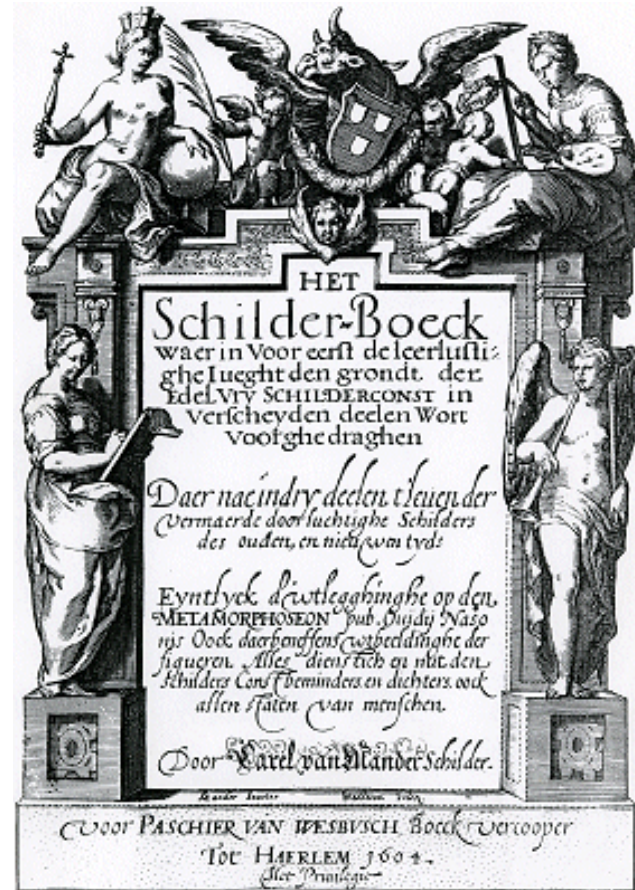 HET
Schilder-Boeck
Waer in Voor eerst de leerlusti-
ghe Iueght den grondt der
Edel Vry SCHILDERCONST in
Verscheyden deelen Wort
Voorghedraghen
Daer nae in dry deelen t'leuen der
vermaerde doorluchtighe Schilders
des ouden, en nieuwen tyds
Eyntlyck d'wtlegghinghe op den
METAMORPHOSEON pub. Ouidij Naso
nis Oock daerbeneffens wtbeeldinghe der
figueren. Alles dienstich en nut den
schilders Constbeminders en dichters, oock
allen staten van menschen.
Door Carel van Mander Schilder.
Voor PASCHIER VAN WESBVSCH Boeck vercooper
Tot HAERLEM 1604.
Met Privilegie